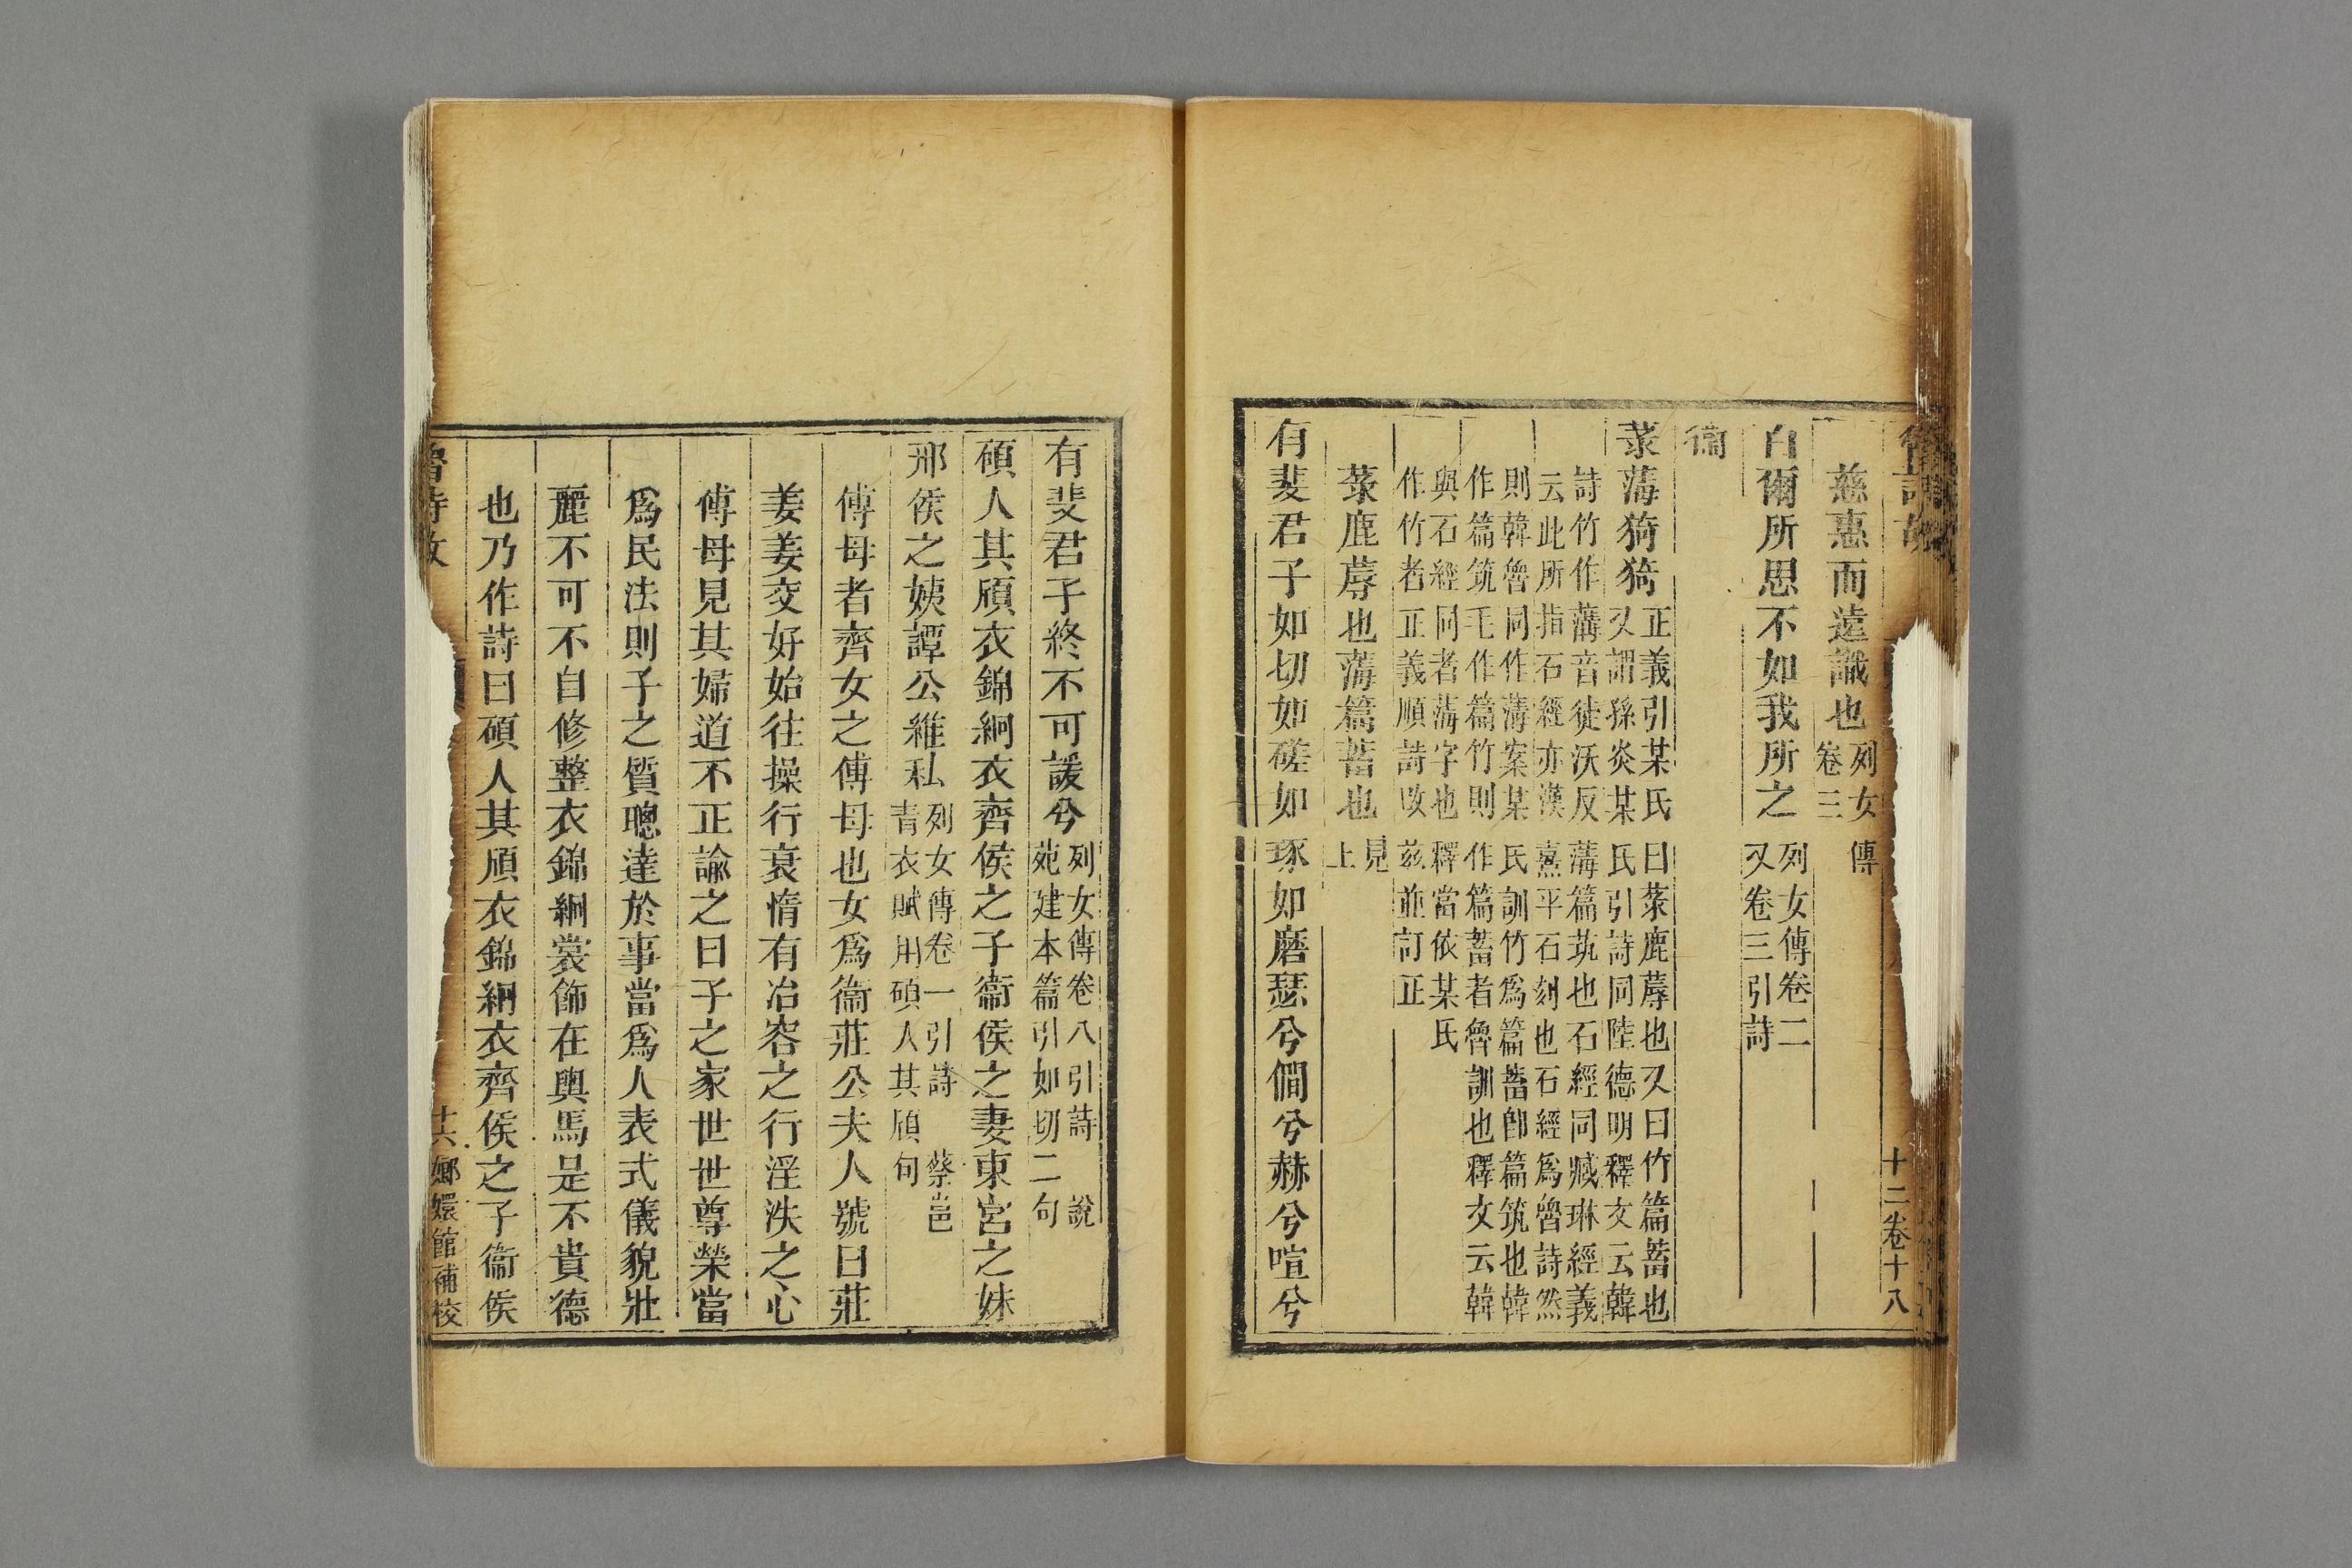 十二卷十八
慈惠而遠識也列女傳
卷三
百爾所思不如我所之列女傳卷二
又卷三引詩
衞
菉薄猗猗正義引某氏曰菉鹿蓐也又曰竹篇蓄也
又謂孫炎某氏引詩同陸德明釋文云韓
詩竹作薄音徒沃反薄篇茿也石經同臧琳經義
云此所指石經亦漢熹平石刻也石經爲魯詩然
則韓魯同作薄案某氏訓竹爲篇蓄卽篇筑也韓
作篇筑毛作篇竹則作篇蓄者魯訓也釋文云韓
與石經同者薄字也釋當依某氏
作竹者正義順詩改茲並訂正
菉鹿蓐也薄篇蓄也見
上
有斐君子如切如磋如琢如磨瑟兮僩兮赫兮喧兮
有斐君子終不可諼兮列女傳卷八引詩 說
苑建本篇引如切二句
碩人其頎衣錦絅衣齊侯之子衞侯之妻東宮之妹
邢侯之姨譚公維私列女傳卷一引詩 蔡邕
青衣賦用碩人其頎句
傅母者齊女之傅母也女爲衞莊公夫人號曰莊
姜姜交好始往操行衰惰有冶容之行淫泆之心
傅母見其婦道不正諭之曰子之家世世尊榮當
爲民法則子之質聰達於事當爲人表式儀貌壯
麗不可不自修整衣錦絅裳飾在輿馬是不貴德
也乃作詩曰碩人其頎衣錦絅衣齊侯之子衞侯
魯詩故
十六
嫏嬛館補校